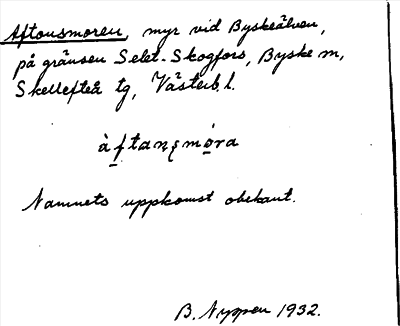 Aftonsmoren, myr vid Byskeälven,
på gränsen Selet-Skogfors, Byske sn,
Skellefteå tg, Västerb. l.
àftanʂmóra
Namnets uppkomst obekant.
B. Nyppen 1932.